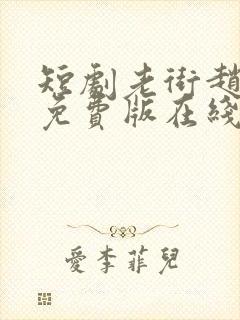 短劇老街趙
免費版在綫
愛李菲兒